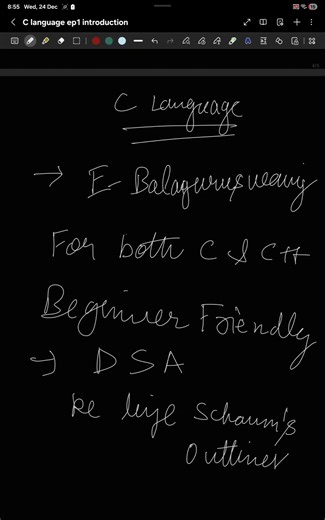 8:55 Wed, 24 Dec
C language ep1 introduction
C Language
→ E- Balaguruswamy
For both C & C++
Beginner Friendly
→ DSA
ke liye Schaum's
Outlines